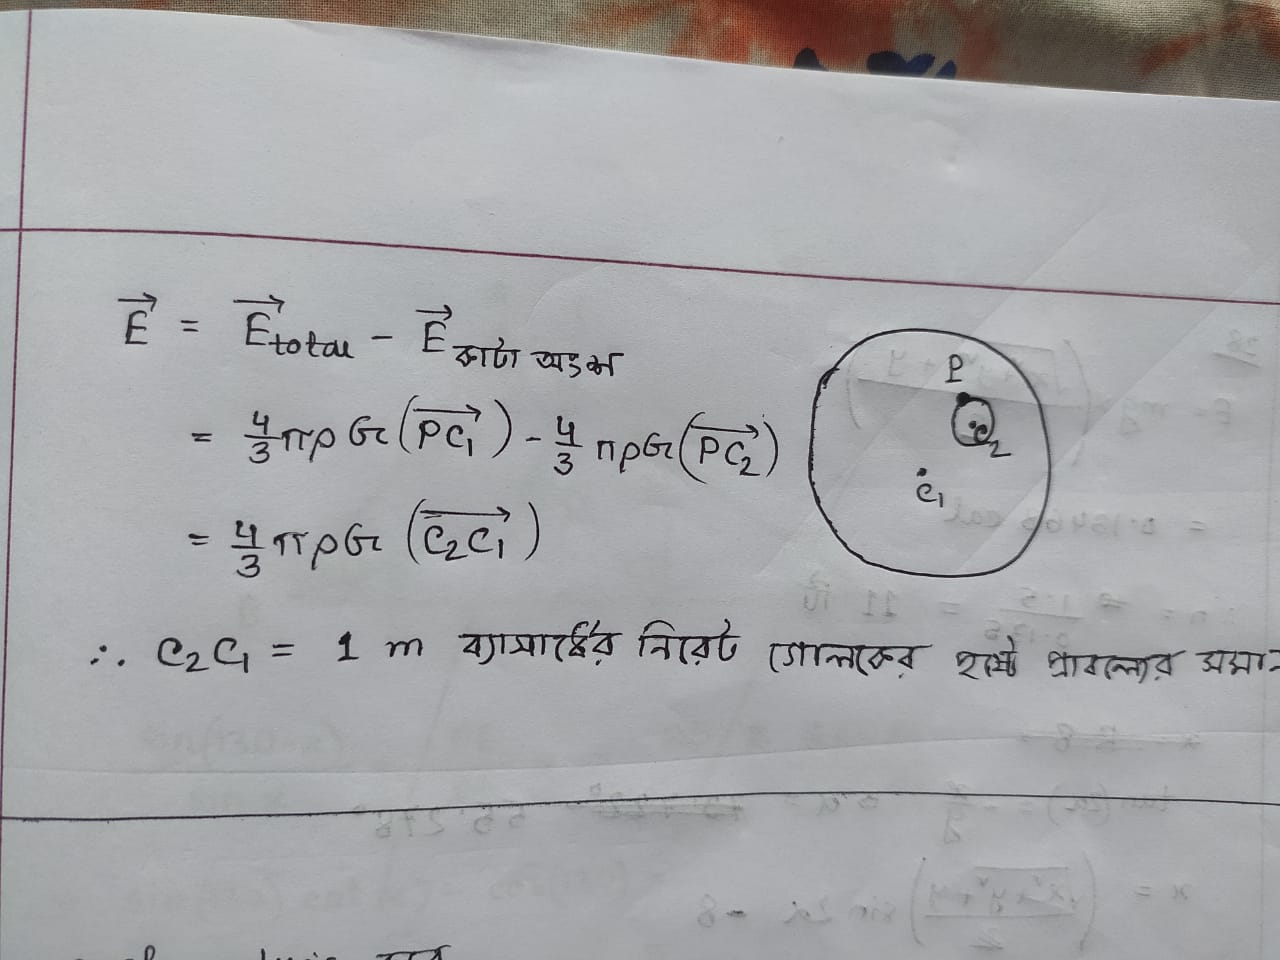 E⃗ = E⃗total - E⃗কাটা অংশ
= 4/3 πρG (PC₁⃗) - 4/3 πρG (PC₂⃗)
= 4/3 πρG (C₂C₁⃗)
P
C₂
C₁
∴ C₂C₁ = 1 m ব্যাসার্ধের নিরেট গোলকের পৃষ্ঠে প্রাবল্যের সমান